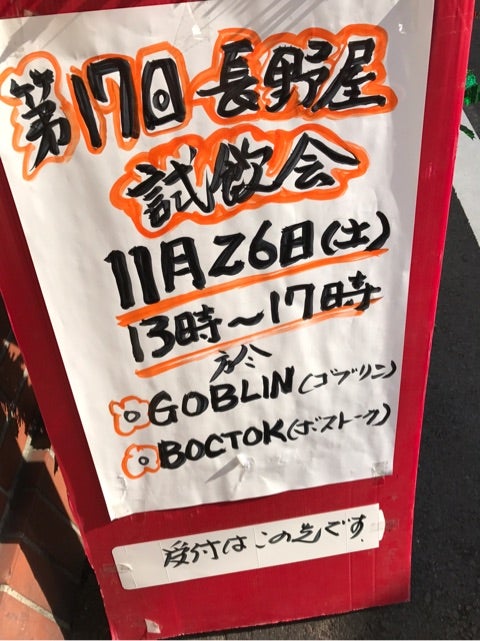 第17回 長野屋
試飲会
11月26日(土)
13時〜17時
於
◎GOBLIN(ゴブリン)
◎BOCTOK(ボストーク)
受付はこの先です